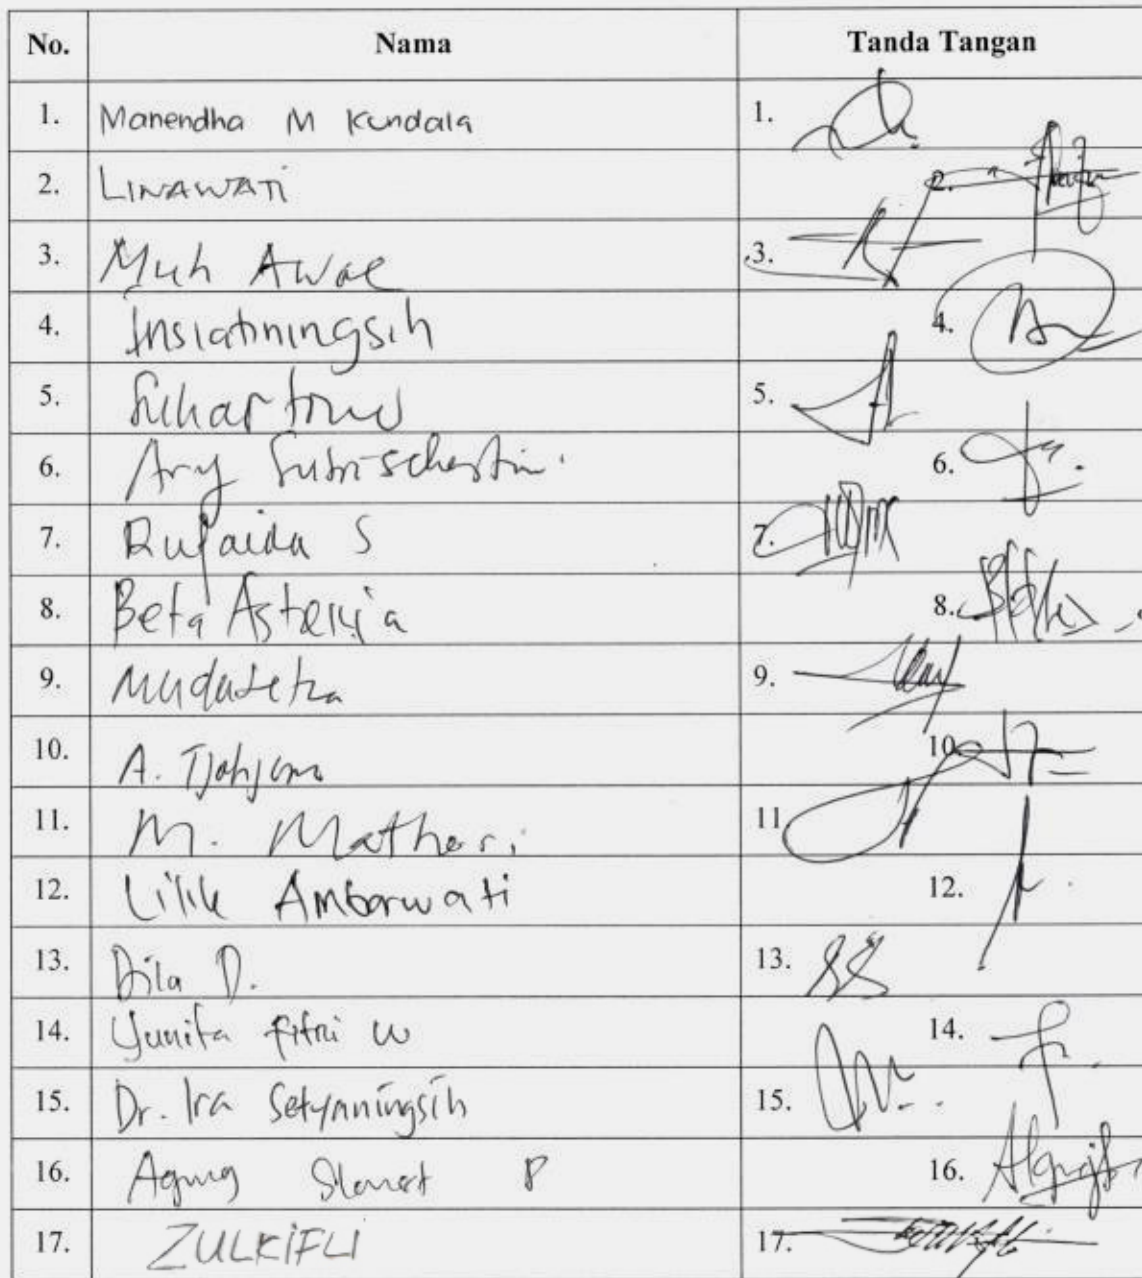 No. Nama Tanda Tangan
1. Manendha M Kundala 1.
2. LINAWATI 2.
3. Muh Awal 3.
4. Insiatiningsih 4.
5. Suhartono 5.
6. Ary 6.
7. Rufaida S 7.
8. Beta Asteria 8.
9. 9.
10. A. Tjahjono 10.
11. M. Mathori 11.
12. Lilik Ambarwati 12.
13. Dila D. 13.
14. Yunita Fitri W 14.
15. Dr. Ira Setyaningsih 15.
16. Agung Slamet P 16.
17. ZULKIFLI 17.